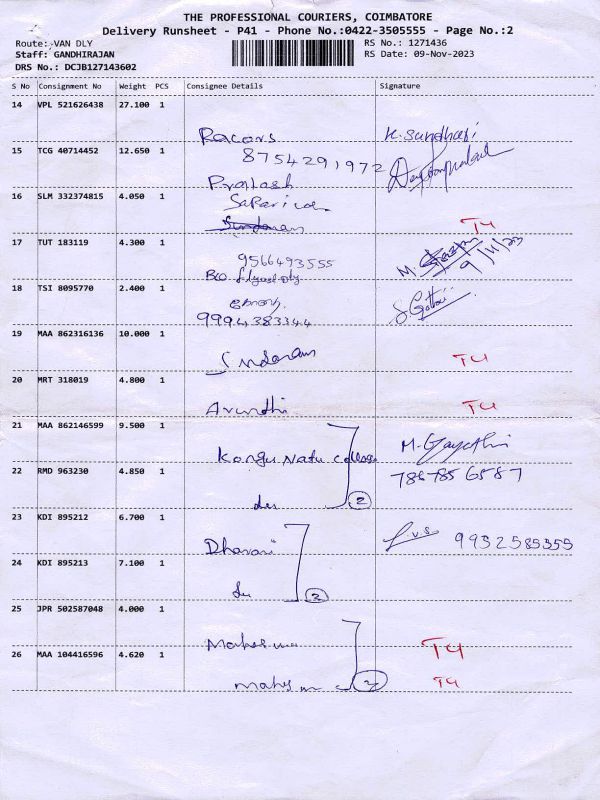 THE PROFESSIONAL COURIERS, COIMBATORE
Delivery Runsheet - P41 - Phone No.:0422-3505555 - Page No.:2
Route: VAN DLY
Staff: GANDHIRAJAN
DRS No.: DCJB127143602
RS No.: 1271436
RS Date: 09-Nov-2023
S No Consignment No Weight PCS Consignee Details Signature
14 VPL 521626438 27.100 1
Racors K. Sundhari
15 TCG 40714452 12.650 1
8754291972
Pratash
16 SLM 332374815 4.050 1
T4
17 TUT 183119 4.300 1
9566493555 M 9/11/23
18 TSI 8095770 2.400 1
9994383344
19 MAA 862316136 10.000 1
Sndaram T4
20 MRT 318019 4.800 1
Arundhi T4
21 MAA 862146599 9.500 1
Kongu Natu College M. Gayathri
22 RMD 963230 4.850 1
7867856587
du 2
23 KDI 895212 6.700 1
Dharani 9932585355
24 KDI 895213 7.100 1
du 2
25 JPR 502587048 4.000 1
T4
26 MAA 104416596 4.620 1
T4